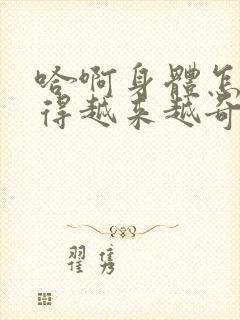 哈啊身體怎
得越来越奇
翟隽